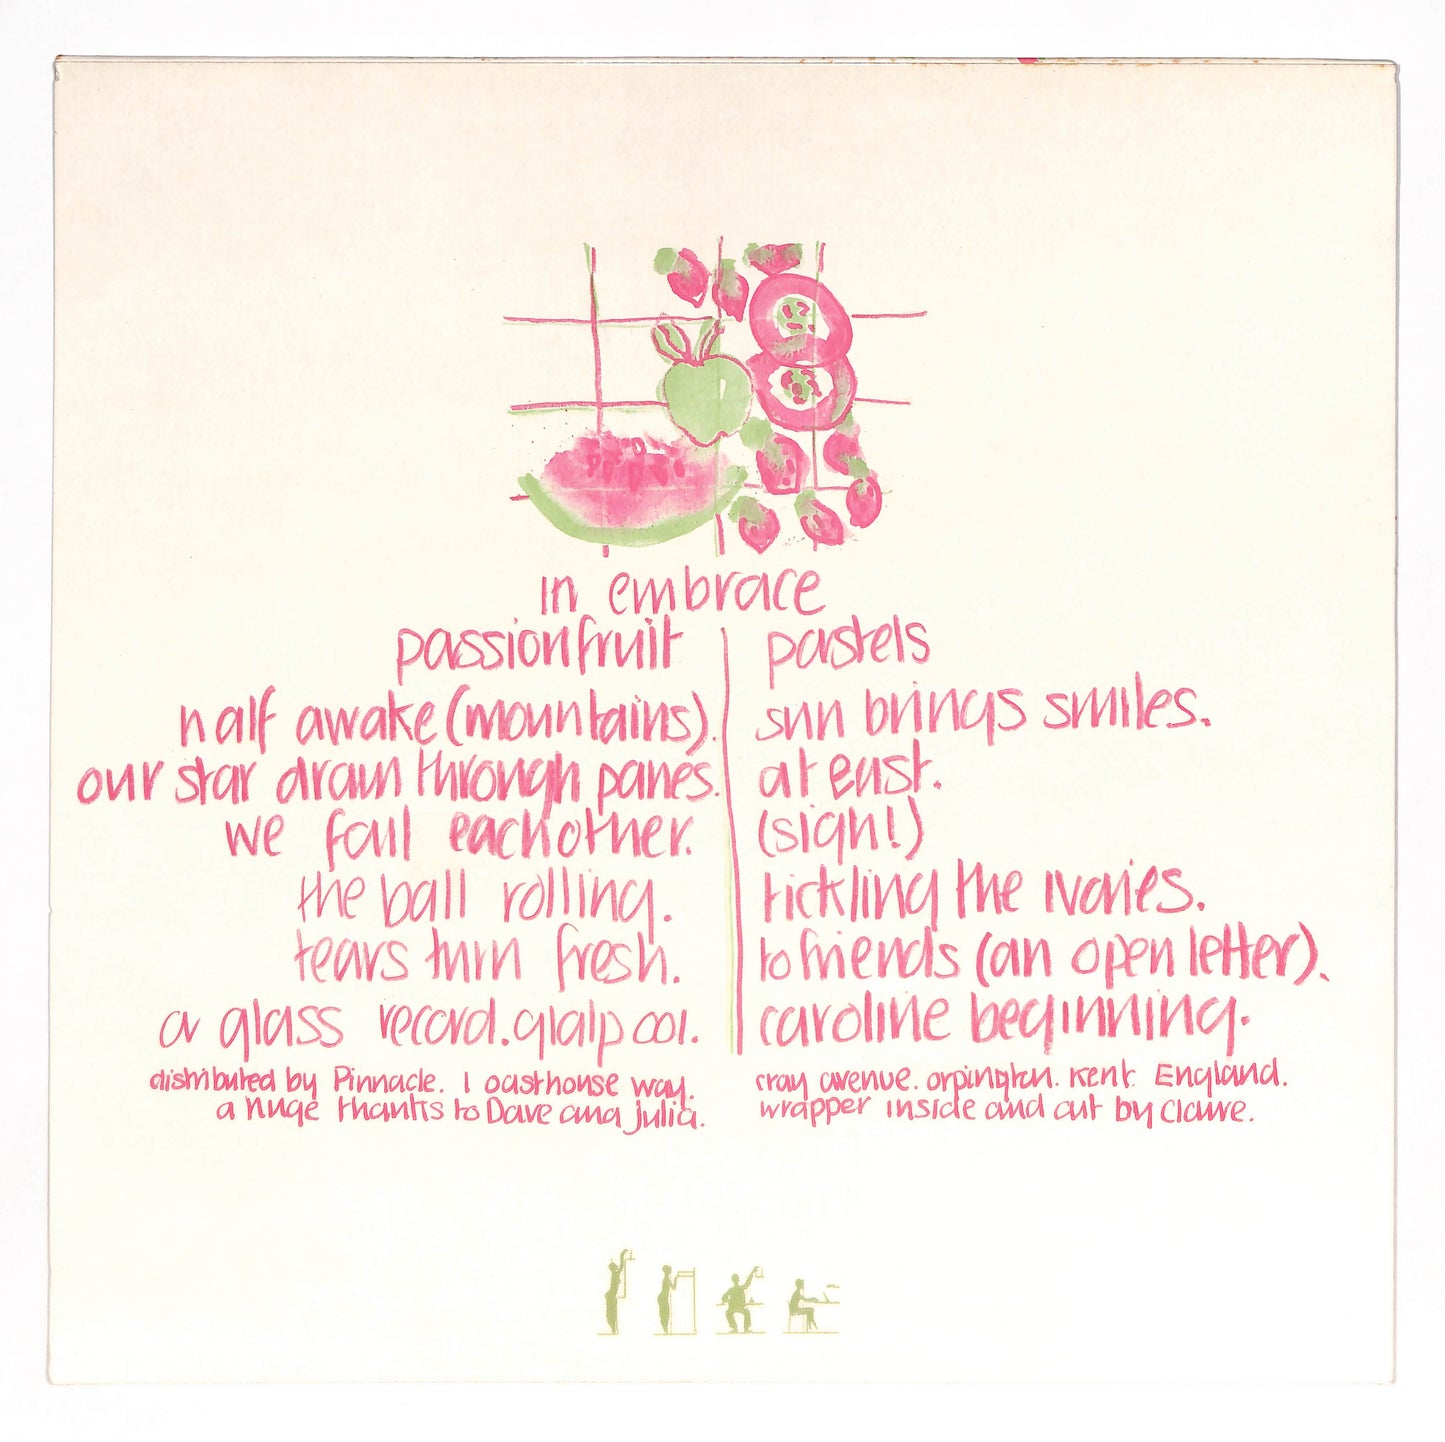 in embrace
passionfruit pastels
half awake (mountains).
our star drawn through panes.
we fail eachother.
the ball rolling.
tears turn fresh.
a glass record. glalp 001.
sun brings smiles.
at east.
(sigh!)
tickling the ivories.
to friends (an open letter).
caroline beginning.
distributed by Pinnacle. 1 oasthouse way. cray avenue. orpington. Kent. England.
a huge thanks to Dave and julia. wrapper inside and out by claire.